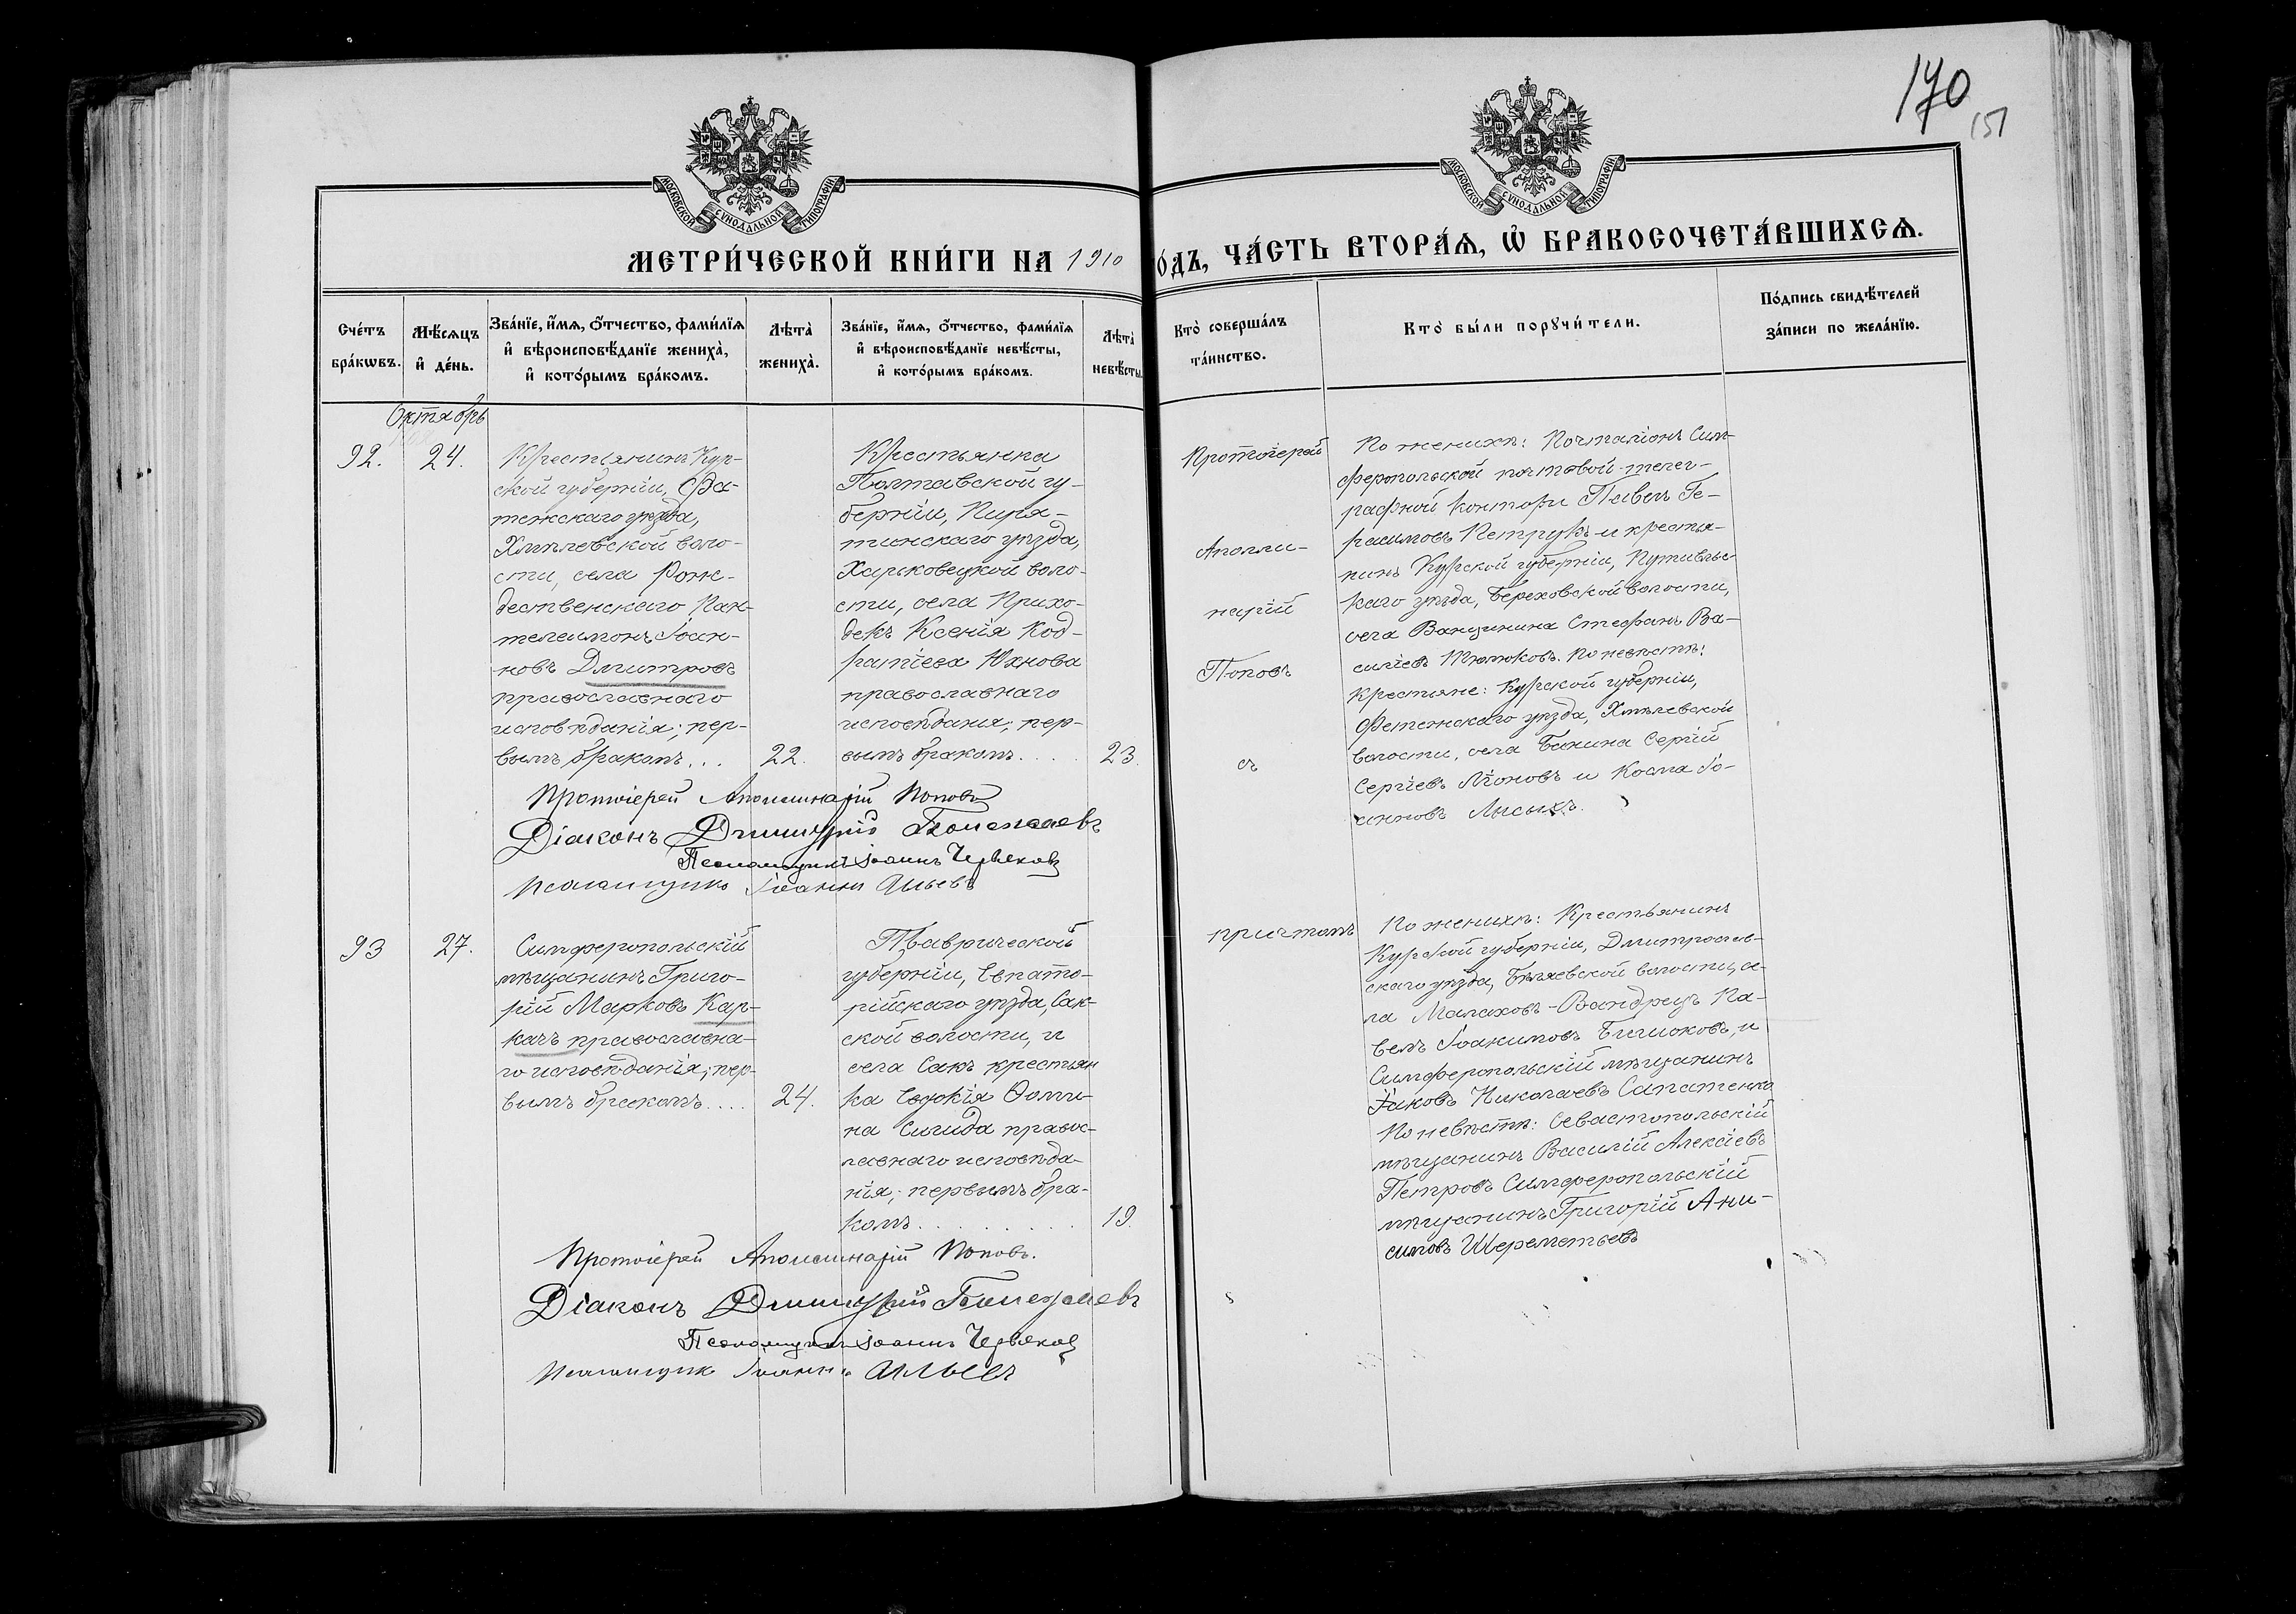 170
151
МОСКОВСКОЙ СѴНОДАЛЬНОЙ ТИПОГРАФІИ
МОСКОВСКОЙ СѴНОДАЛЬНОЙ ТИПОГРАФІИ
МЕТРИ́ЧЕСКОЙ КНИ́ГИ НА 1910
О́ДЪ, ЧА́СТЬ ВТОРА́Ѧ, Ѡ҆ БРАКОСОЧЕТА́ВШИХСѦ.
Сче́тъ
бра́кѡвъ.
Мѣ́сяцъ
и҆ де́нь.
Зва́нїе, и҆́мѧ, ѻ҆́тчество, фами́лїѧ
и҆ вѣроисповѣ́данїе жениха̀,
и҆ кото́рымъ бра́комъ.
Лѣта̀
жениха̀.
Зва́нїе, и҆́мѧ, ѻ҆́тчество, фами́лїѧ
и҆ вѣроисповѣ́данїе невѣ́сты,
и҆ кото́рымъ бра́комъ.
Лѣта̀
невѣ́сты
Кто̀ соверша́лъ
та́инство.
Кто̀ бы́ли порꙋчи́тели.
По́дпись свидѣ́телей
за́писи по жела́нїю.
Октябрь
92.
24.
Крестьянинъ Кур-
ской губерніи, Фа-
тежскаго уѣзда,
Хмѣлевской воло-
сти, села Рож-
дественскаго Пан-
телеимонъ Іоан-
новъ Дмитровъ
православнаго
исповѣданія; пер-
вымъ бракомъ...
22.
Крестьянка
Полтавской гу-
берніи, Пиря-
тинскаго уѣзда,
Харьковецкой воло-
сти, села Прихо-
декъ Ксенія Код-
ратіева Юхнова
православнаго
исповѣданія; пер-
вымъ бракомъ....
23.
Протоіерей
Аполли-
нарій
Поповъ
съ
По женихѣ: Почталіонъ Сим-
феропольской почтовой-телег-
рафной Конторы Павелъ Ге-
расимовъ Петрукъ и крестья-
нинъ Курской губерніи, Путивльс-
каго уѣзда, Береховской волости,
села Ванина Стефанъ Ва-
силіевъ Тюлюковъ. По невѣстѣ:
Крестьяне: Курской губерніи,
Фатежскаго уѣзда, Хмѣлевской
волости, села Банина Сергій
Сергіевъ Аѳоновъ и Косма Іо-
анновъ Лысыхъ.
Протоіерей Аполлинарій Поповъ
Діаконъ Димитрій
Псаломщикъ Іоаннъ Червяковъ
Псаломщикъ Іоаннъ Ильевъ
93
27.
Симферопольскій
мѣщанинъ Григо-
рій Марковъ Кар-
качъ православна-
го исповѣданія; пер-
вымъ бракомъ....
24.
Таврической
губерніи, Евпато-
рійскаго уѣзда, Сак-
ской волости, и
села Сакъ крестьян
ка Евдокія Ѳоми-
на Сигида правос-
лавнаго исповѣда-
нія; первымъ бра-
комъ.........
19.
причтомъ
По женихѣ: Крестьянинъ
Курской губерніи, Дмитровс-
скаго уѣзда, Бѣляевской волости, се-
ла Малаховъ-Вандрецъ Па-
велъ Іоакимовъ Бирюковъ, и
Симферопольскій мѣщанинъ
Іаковъ Николаевъ Сапатенко
По невѣстѣ: Севастопольскій
мѣщанинъ Василій Алексіевъ
Петровъ Симферопольскій
мѣщанинъ Григорій Ани-
симовъ Шереметьевъ
Протоіерей Аполлинарій Поповъ.
Діаконъ Димитрій
Псаломщикъ Іоаннъ Червяковъ
Псаломщикъ Іоаннъ Ильевъ